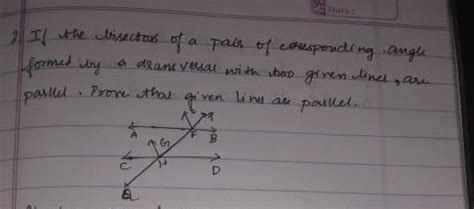 Date:
2. If the bisectors of a pair of coresponding angle
formed by a transversal with two given lines, are
parllel. Prove that given lines are parllel.
E
A F B
G
C H D